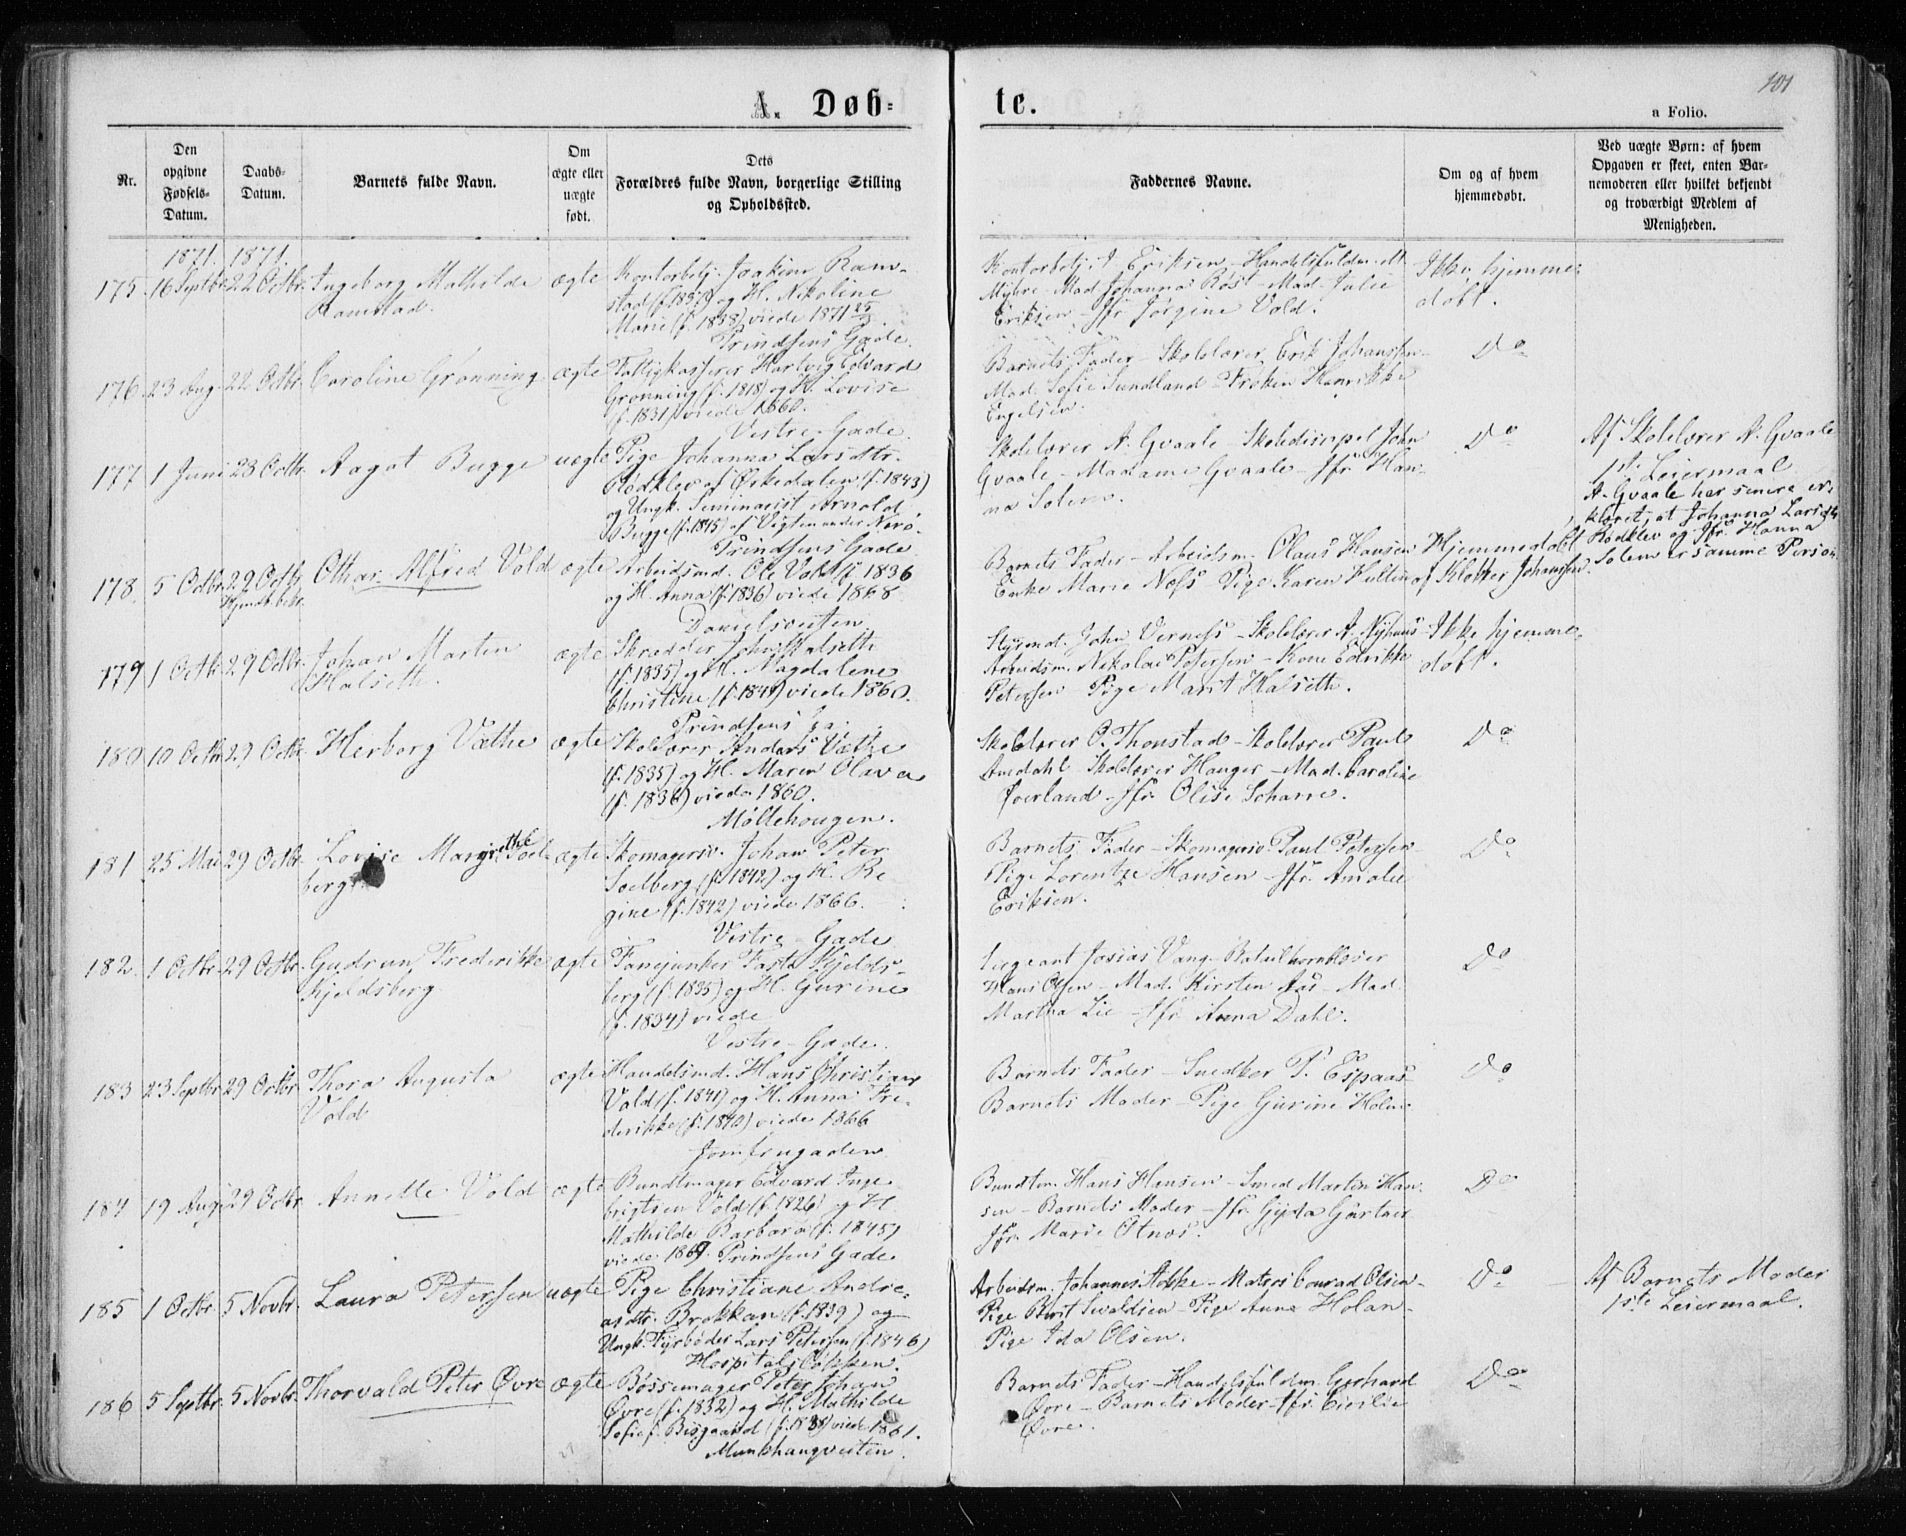 A. Døbte.
101
a Folio.
Nr.
Den opgivne Fødsels-Datum.
Daabs-Datum.
Barnets fulde Navn.
Om ægte eller uægte født.
Dets Forældres fulde Navn, borgerlige Stilling og Opholdssted.
Faddernes Navne.
Om og af hvem hjemmedøbt.
Ved uægte Børn: af hvem Opgaven er skeet, enten Barnemoderen eller hvilket bekjendt og troværdigt Medlem af Menigheden.
1871. 1871.
175. 16 Septbr. 22 Octbr. Ingeborg Mathilde Ramstad. ægte
Kontorbetj. Joakim Ram-
stad (f. 1837) og H. Nikoline
Marie (f. 1838) viede 1871 25/3.
Prindsens Gade.
Kontorbetj. A Eriksen – Handelsfuldm. M.
Myhre – Mad. Johanna Røst – Mad. Julie
Eriksen – Jfr. Jørgine Vold.
Ikke hjemme-
døbt.
176. 23 Aug. 22 Octbr. Caroline Grønning ægte
Fattigkasserer Hartvig Edvard
Grønning (f. 1818) og H. Lovise
(f. 1831) viede 1860.
Vestre-Gade.
Barnets Fader – Skolelærer Erik Johanssen –
Mad. Sofie Sundland – Frøken Henrikke
Engelsen.
Do
177 1 Juni 28 Octbr. Aagot Bugge uægte
Pige Johanna Larsdtr.
Rødklev af Ørkedalen (f. 1843)
og Ungk. Seminarist Arnold
Bugge (f. 1845) af Vigten under Nærø.
Prindsens Gade
Skolelærer A. Gvaale – Skoledisipel John
Gvaale – Madame Gvaale – Jfr. Han-
na Solem.
Do
Af Skolelærer A. Gvaale
1ste Leiermaal
A. Gvaale har senere er-
klæret, at Johanna Larsdtr.
Rødklev og Jfr. Hanna
Solem er samme Person.
178. 5 Octbr. 29 Octbr. Othar Alfred Vold ægte
Arbeidsmd. Ole Vold (f. 1836
og H. Anna (f. 1836) viede 1868
Danielsveiten
Barnets Fader – Arbeidsm. Olaus Hansen
Enke Marie Næss Pige Karen Hullina
Hjemmedøbt
af Klokker Johansen.
179 1 Octbr. 29 Octbr. Johan Martin
Halseth. ægte
Skrædder John Halseth
(f. 1835) og H. Magdalene
Christine (f. 1841) viede 1860.
Prindsens Ga.
Styrmd. John Verness – Skolelærer A. Nyhuus
Arbeidsm. Nikolai Petersen – Kone Edrikke
Petersen Pige Marit Halseth.
Ikke hjemme-
døbt.
180 10 Octbr. 29 Octbr. Herborg Væthe ægte
Skolelærer Anders Væthe
(f. 1835) og H. Maren Olava
(f. 1836) viede 1860.
Møllehougen.
Skolelærer O. Thonstad – Skolelærer Paul
Amdahl Skolelærer Hauger – Mad. Caroline
Øverland – Jfr. Olise Scharre.
Do
181 25 Mai 29 Octbr. Lovise Margrethe Soel-
berg ægte
Skomagersv. Johan Peter
Soelberg (f. 1842) og H. Re
gine (f. 1842) viede 1866.
Vestre-Gade
Barnets Fader – Skomagersv. Paul Petersen
Pige Lorentze Hansen – Jfr. Amalie
Eriksen.
Do
182. 1 Octbr. 29 Octbr. Gudrun Frederikke
Kjeldsberg ægte
Fanejunker Fasta Kjelds-
berg (f. 1835) og H. Gurine
(f. 1834) viede
Vestre-Gade.
Sergeant Josias Vang – Batailhornblæser
Hans Olsen – Mad. Kirsten Aas – Mad.
Martha Lie – Jfr. Anna Dahl.
Do
183 23 Septbr. 29 Octbr. Thora Augusta
Vold ægte
Handelsmd. Hans Christian
Vold (f. 1841) og H. Anna Fre-
derikke (f. 1840) viede 1866
Jomfrugaden
Barnets Fader – Snedker P. Espaas
Barnets Moder – Pige Gurine Holm
Do
184 19 Aug. 29 Octbr. Annette Vold ægte
Bundtmager Edvard Inge
brigtsen Vold (f. 1826) og H.
Mathilde Barbara (f. 1845)
viede 1869 Prindsens Gade
Bundtm. Hans Hansen – Smed Martin Han-
sen – Barnets Moder – Jfr. Gyda Gartner
Jfr. Marie Otnes.
Do
185 1 Octbr. 5 Novbr. Laura Peterssen uægte
Pige Christiane Andre-
asdtr. Brekkan (f. 1839) og
Ungk. Fyrbøder Lars Petersen (f. 1846)
Hospitalsløkken.
Arbeidsm. Johannes Aakke – Matros Conrad Olsen –
Pige Berit Sivaldsen – Pige Anna Holan –
Pige Ida Olsen.
Do
Af Barnets Moder
1ste Leiermaal.
186 5 Septbr. 5 Novbr. Thorvald Peter Øvre ægte
Bøssemager Peter Johan
Øvre (f. 1832) og H. Mathilde
Sofie f. Bisgaard (f. 1838) viede 1861.
Munkhaugveiten.
Barnets Fader – Handelsfuldm. Gerhard
Øvre – Barnets Moder – Jfr. Cecilie
Øvre.
Do